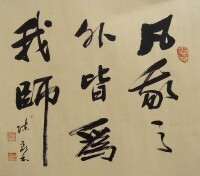 凡我之
外皆為
我師